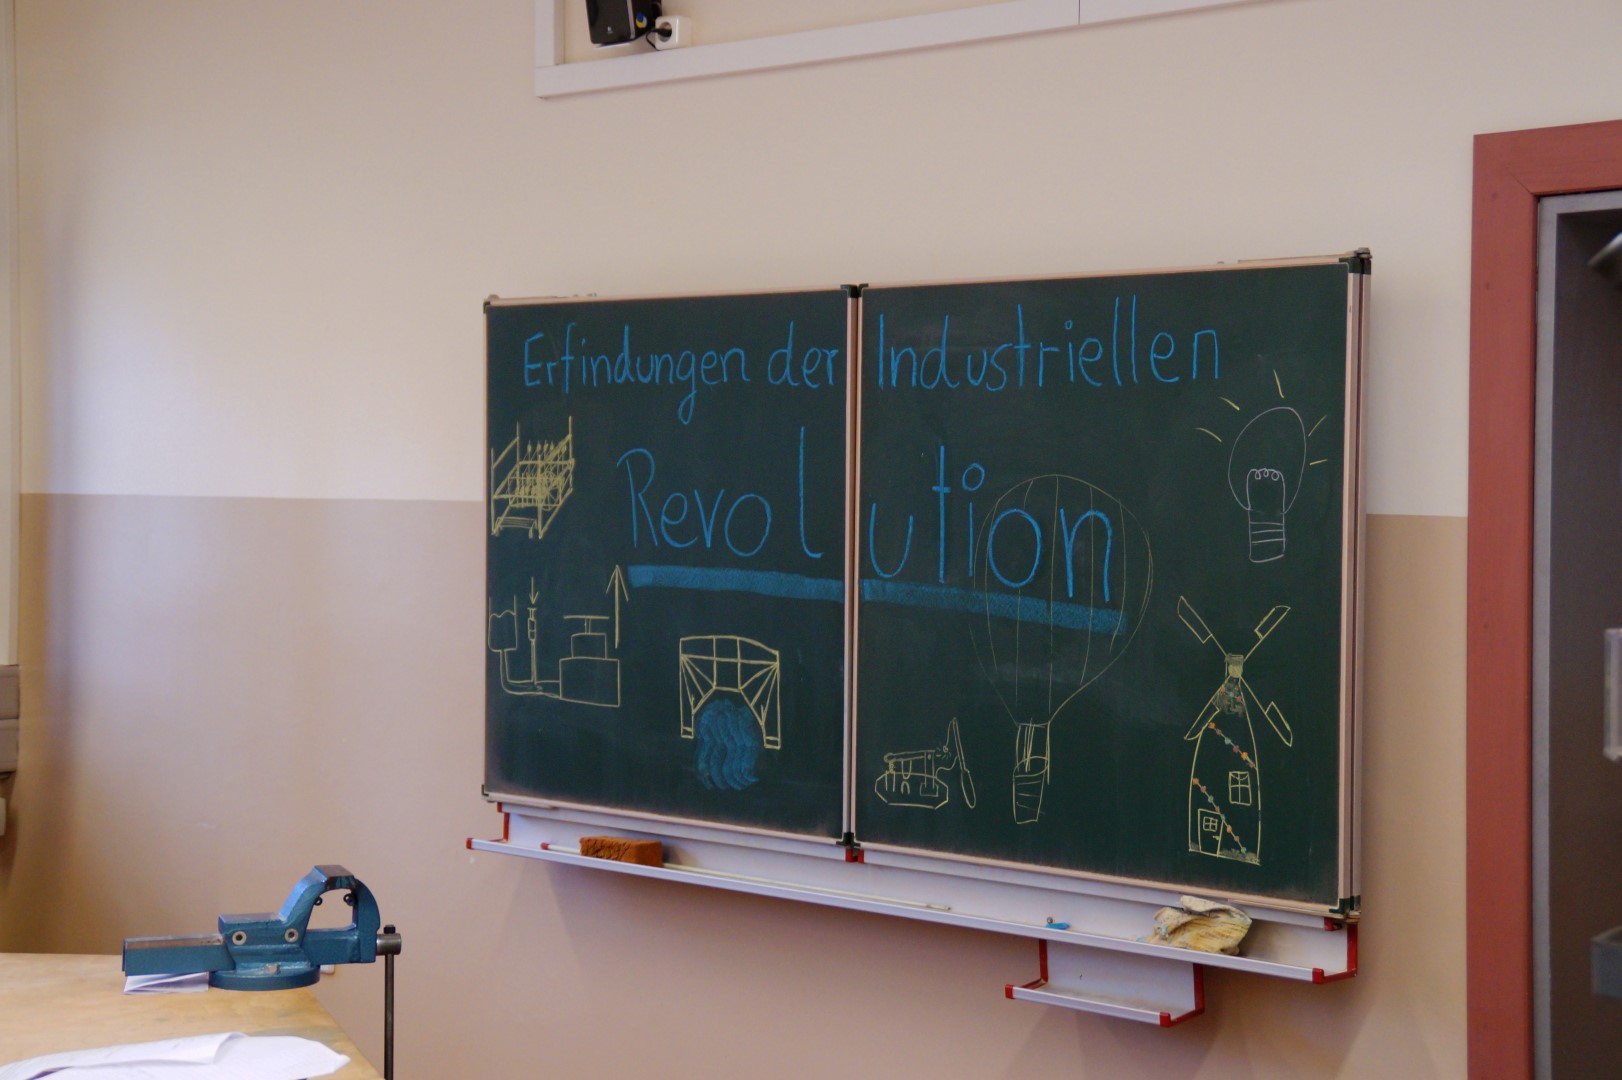 Erfindungen der Industriellen
Revolution